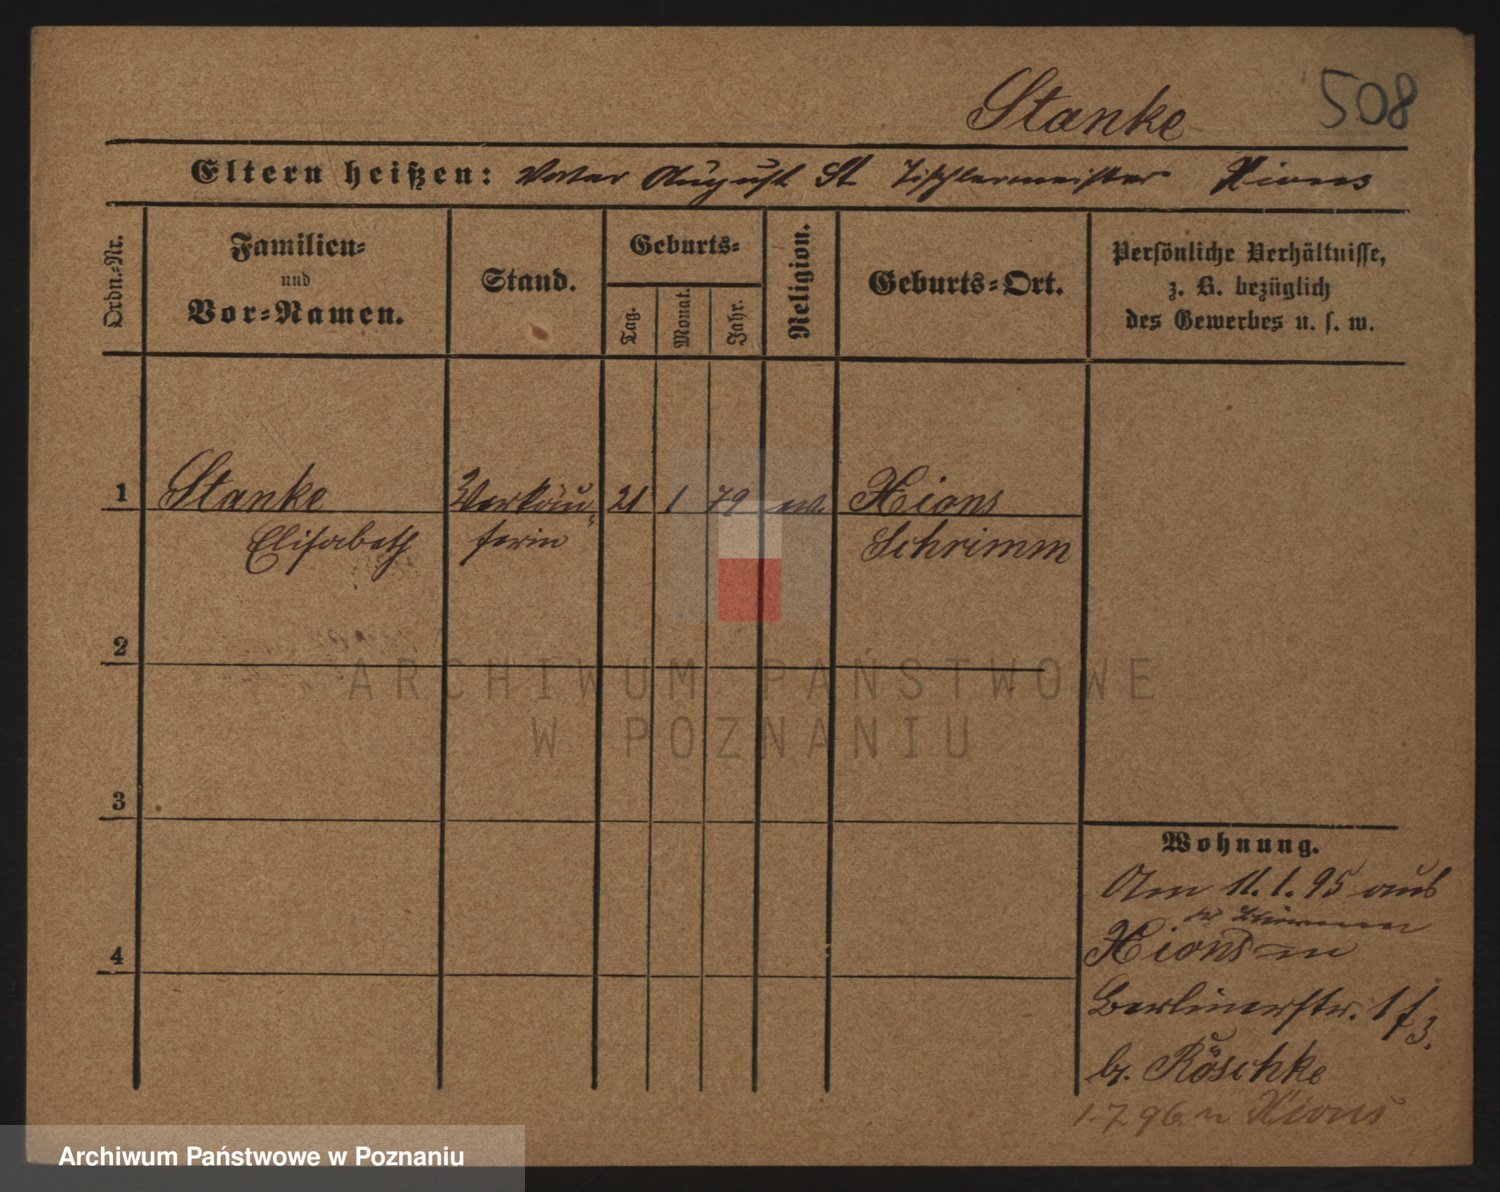 Stanke 508
Eltern heißen: Vater August St Tischlermeister Xions
Ordn.-Nr.
Familien-
und
Vor-Namen.
Stand.
Geburts-
Tag.
Monat.
Jahr.
Religion.
Geburts-Ort.
Persönliche Verhältnisse,
z. B. bezüglich
des Gewerbes u. s. w.
1 Stanke Verkäu- 21 1 79 ev. Xions
Elisabeth ferin Schrimm
2
ARCHIWUM PAŃSTWOWE
W POZNANIU
3
Wohnung.
Am 11.1.95 aus
Xions
4
Berlinerstr.
b. Röschke
1.7.96 n Xions
Archiwum Państwowe w Poznaniu